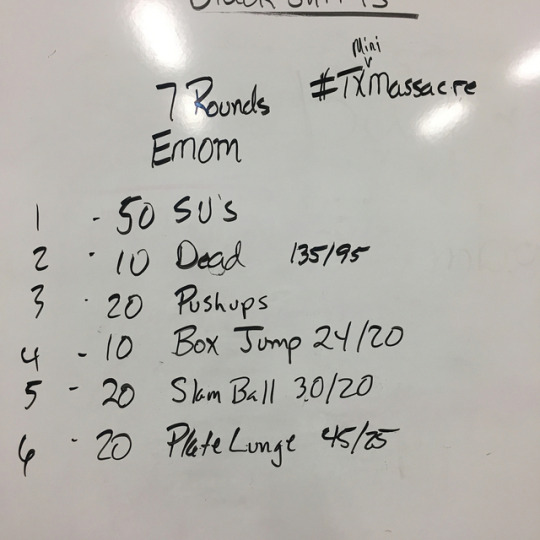 Mini
7 Rounds #TXMassacre
Emom
1 - 50 SU's
2 - 10 Dead 135/95
3 - 20 Pushups
4 - 10 Box Jump 24/20
5 - 20 Slam Ball 30/20
6 - 20 Plate Lunge 45/25